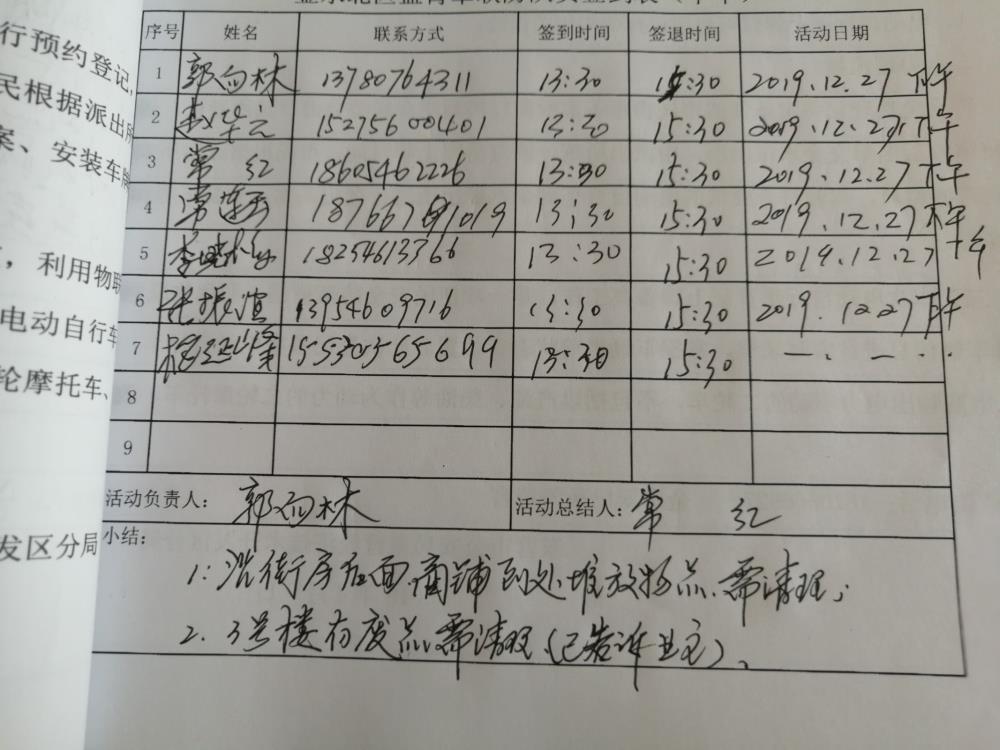 行预约登记,
民根据派出所
案、安装车牌
,利用物联
电动自行车
轮摩托车、
发区分局
序号 姓名 联系方式 签到时间 签退时间 活动日期
1 郭向林 13780764311 13:30 15:30 2019.12.27 下午
2 15275600401 13:30 15:30 2019.12.27 下午
3 常红 18605462226 13:30 15:30 2019.12.27 下午
4 常 13:30 15:30 2019.12.27 下午
5 李 18254613366 13:30 15:30 2019.12.27 下午
6 张振 13954609716 13:30 15:30 2019.12.27 下午
7 15530565699 13:30 15:30
8
9
活动负责人: 郭向林 活动总结人: 常红
小结:
1:沿街房后面,商铺到处堆放物点、需清理;
2.3号楼有废点需清理(已告诉业主)、